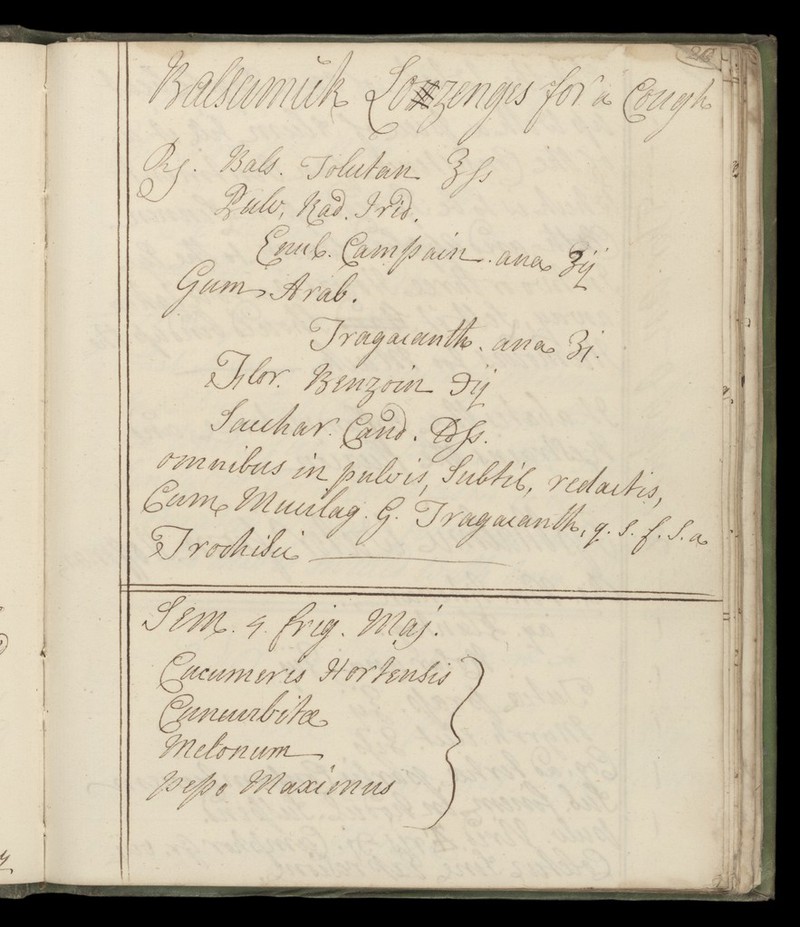 26
Balsamick Lozenges for a Cough
℞. Bals. Tolutan ʒſs
Pulv, Rad. Irid.
Enul. Campain. ana ʒij
Gum Arab.
Tragacanth. ana ʒj.
Flor. Benzoin ℈ij
Sacchar. Cand. ℔ſs.
omnibus in pulvis, Subtil, redactis,
Cum Mucilag. G. Tragacanth, q. S. f. S. a
Trochisci
Sem. 4 frig. Maj.
Cucumeris Hortensis
Cuncurbitæ
Melonum
pepo Maximus